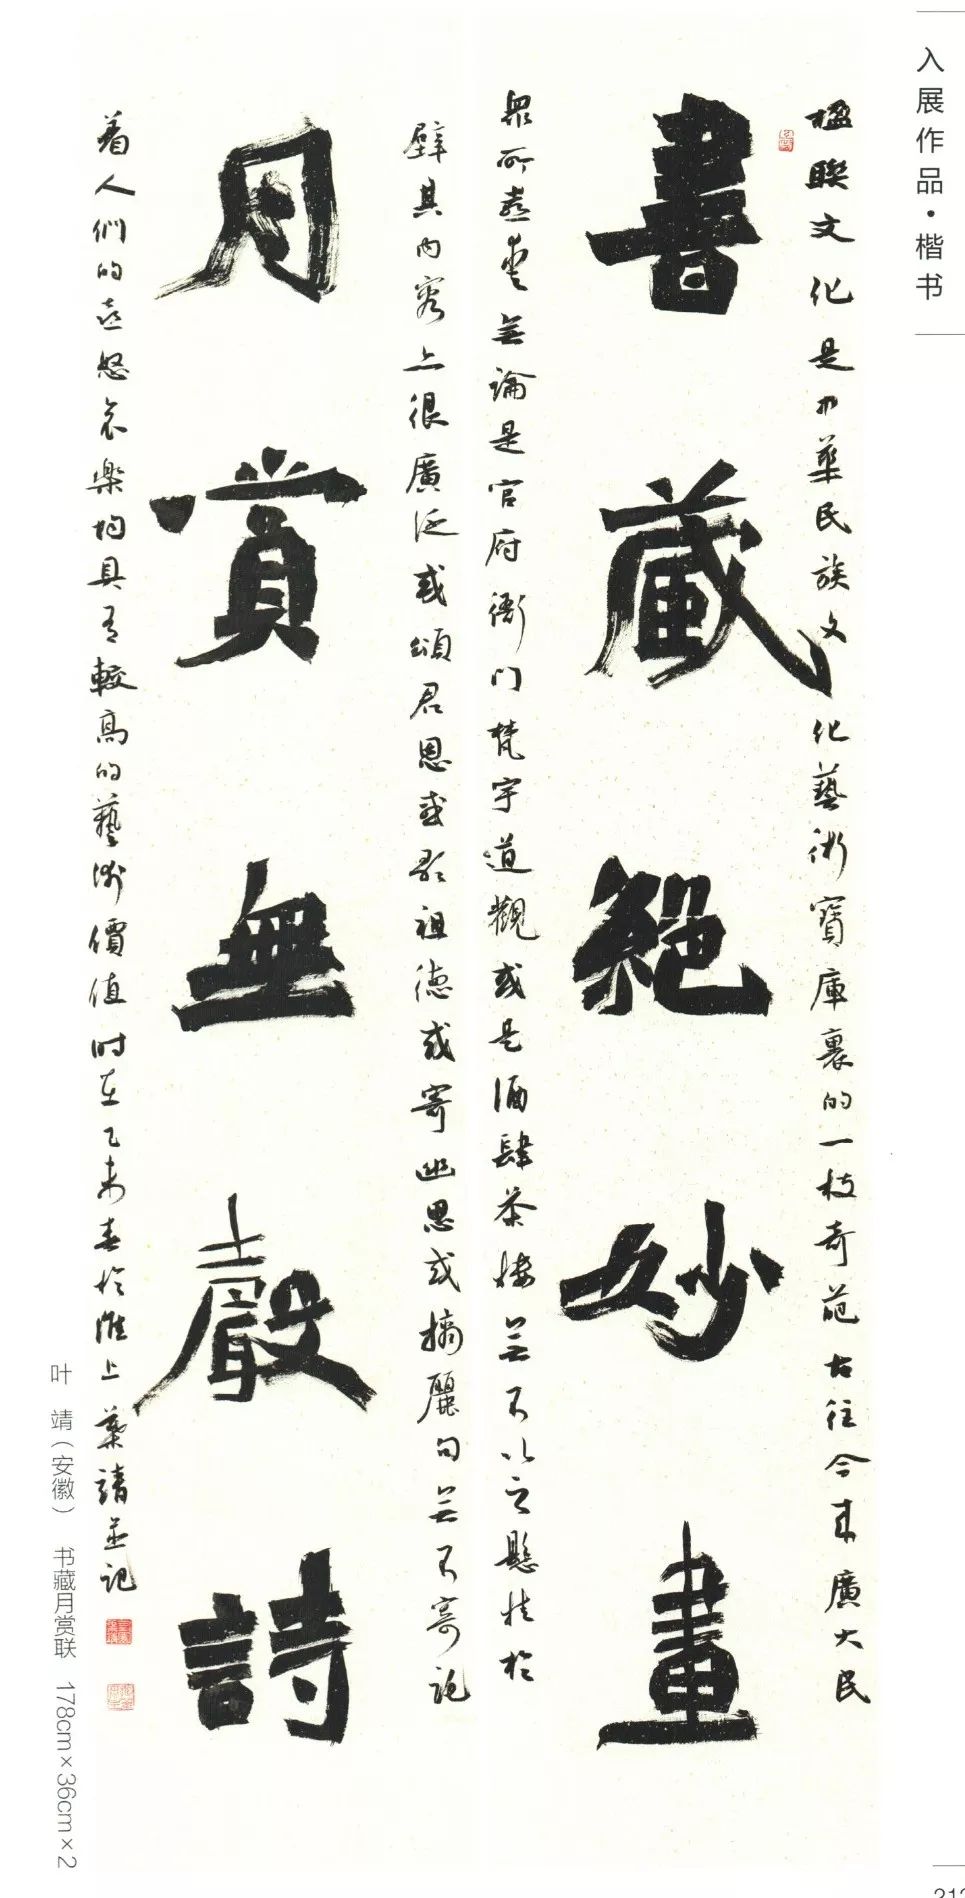 入展作品·楷书
楹聯文化是中華民族文化藝術寶庫裏的一枝奇葩古往今來廣大民
書藏絕妙畫
眾所喜愛無論是官府衙門梵宇道觀或是酒肆茶樓無不以之懸挂於
壁其內容上很廣泛或頌君恩或歌祖德或寄幽思或摘麗句無不寄託
月賞無聲詩
着人們的喜怒哀樂均具有較高的藝術價值時在乙未春於淮上葉靖並記
叶 靖（安徽） 书藏月赏联 178cm×36cm×2